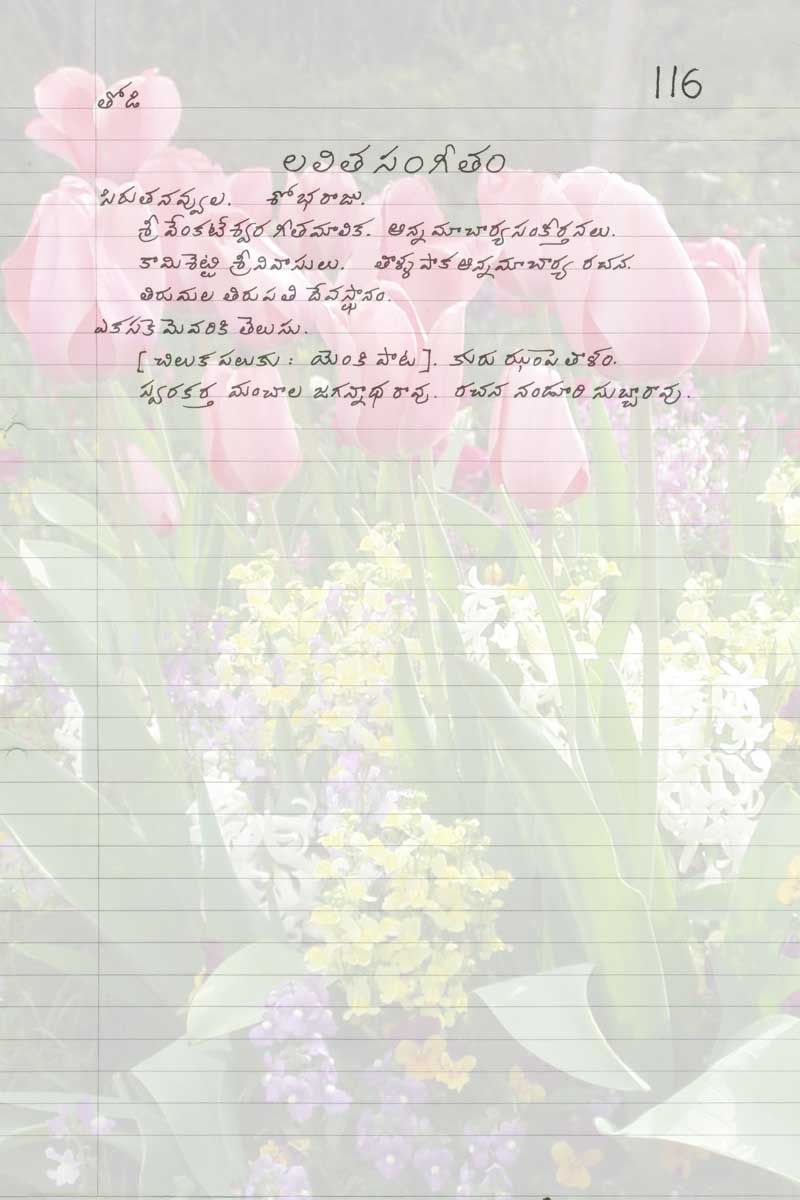 116
తోడి
లలిత సంగీతం
సిరుతనవ్వుల. శోభారాజు.
శ్రీ వేంకటేశ్వర గీతమాలిక. అన్నమాచార్య సంకీర్తనలు.
కామిశెట్టి శ్రీనివాసులు. తాళ్ళపాక అన్నమాచార్య రచన.
తిరుమల తిరుపతి దేవస్థానం.
ఎకసకె మెవరికి తెలుసు.
[ చిలుక పలుకు : యెంకి పాట ]. కురు ఝంపె తాళం.
స్వరకర్త మంచాల జగన్నాధ రావు. రచన నండూరి సుబ్బారావు.